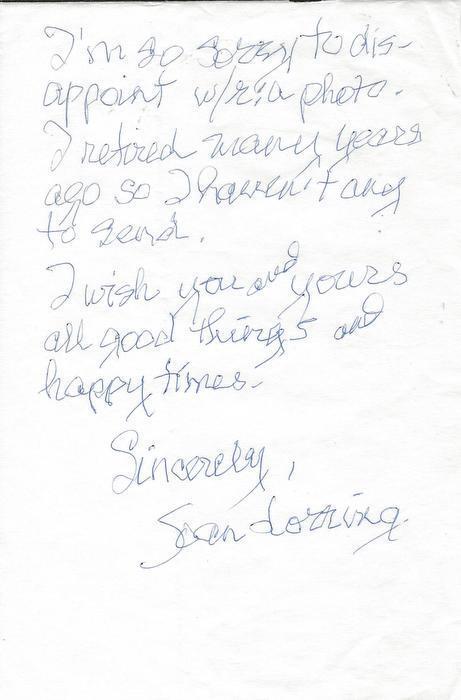 I'm so sorry to dis-
appoint w/r: a photo.
I retired many years
ago so I haven't any
to send.
I wish you and yours
all good things and
happy times.
Sincerely,
Joan Lorring